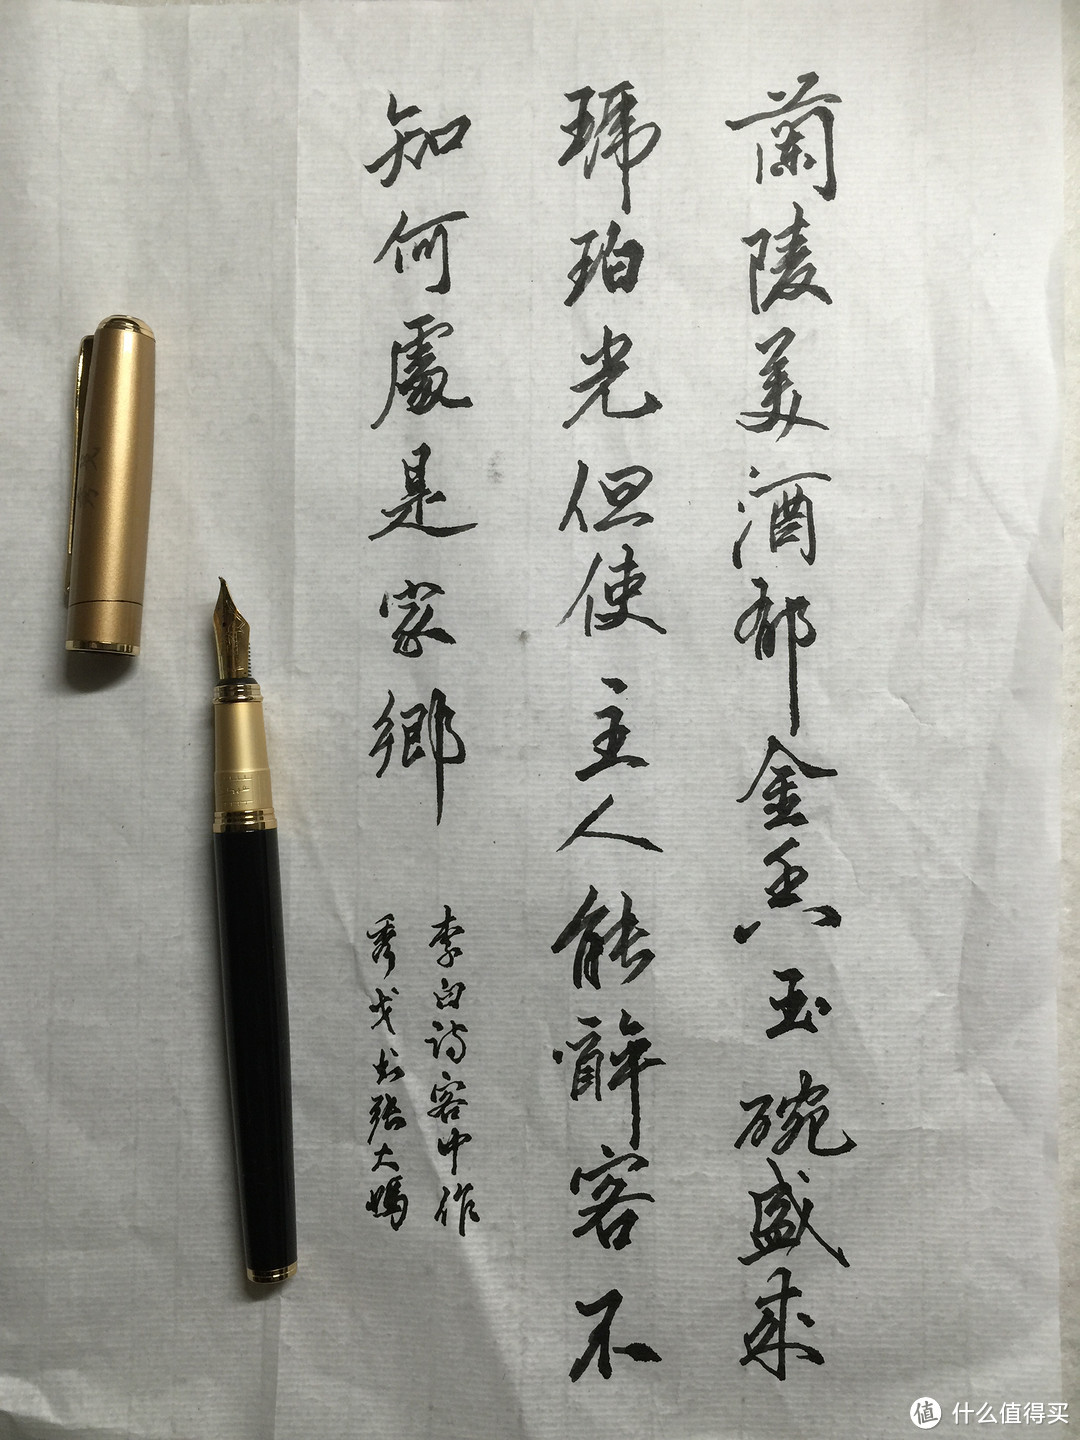 蘭陵美酒郁金香玉碗盛来
琥珀光但使主人能醉客不
知何處是家鄉
李白诗客中作
秀戈书张大媽
值 什么值得买